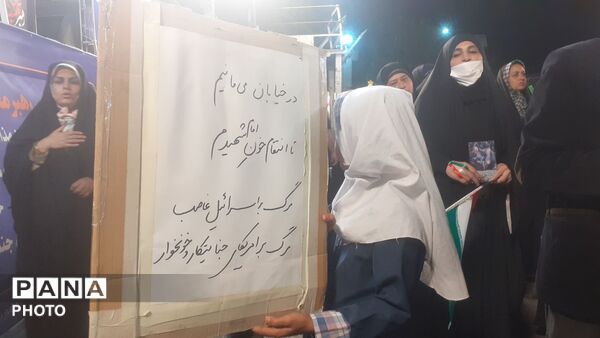 در خیابان می‌مانیم
تا انتقام خون امام شهیدم
مرگ بر اسرائیل غاصب
مرگ بر امریکای جنایتکار و خونخوار
PANA
PHOTO